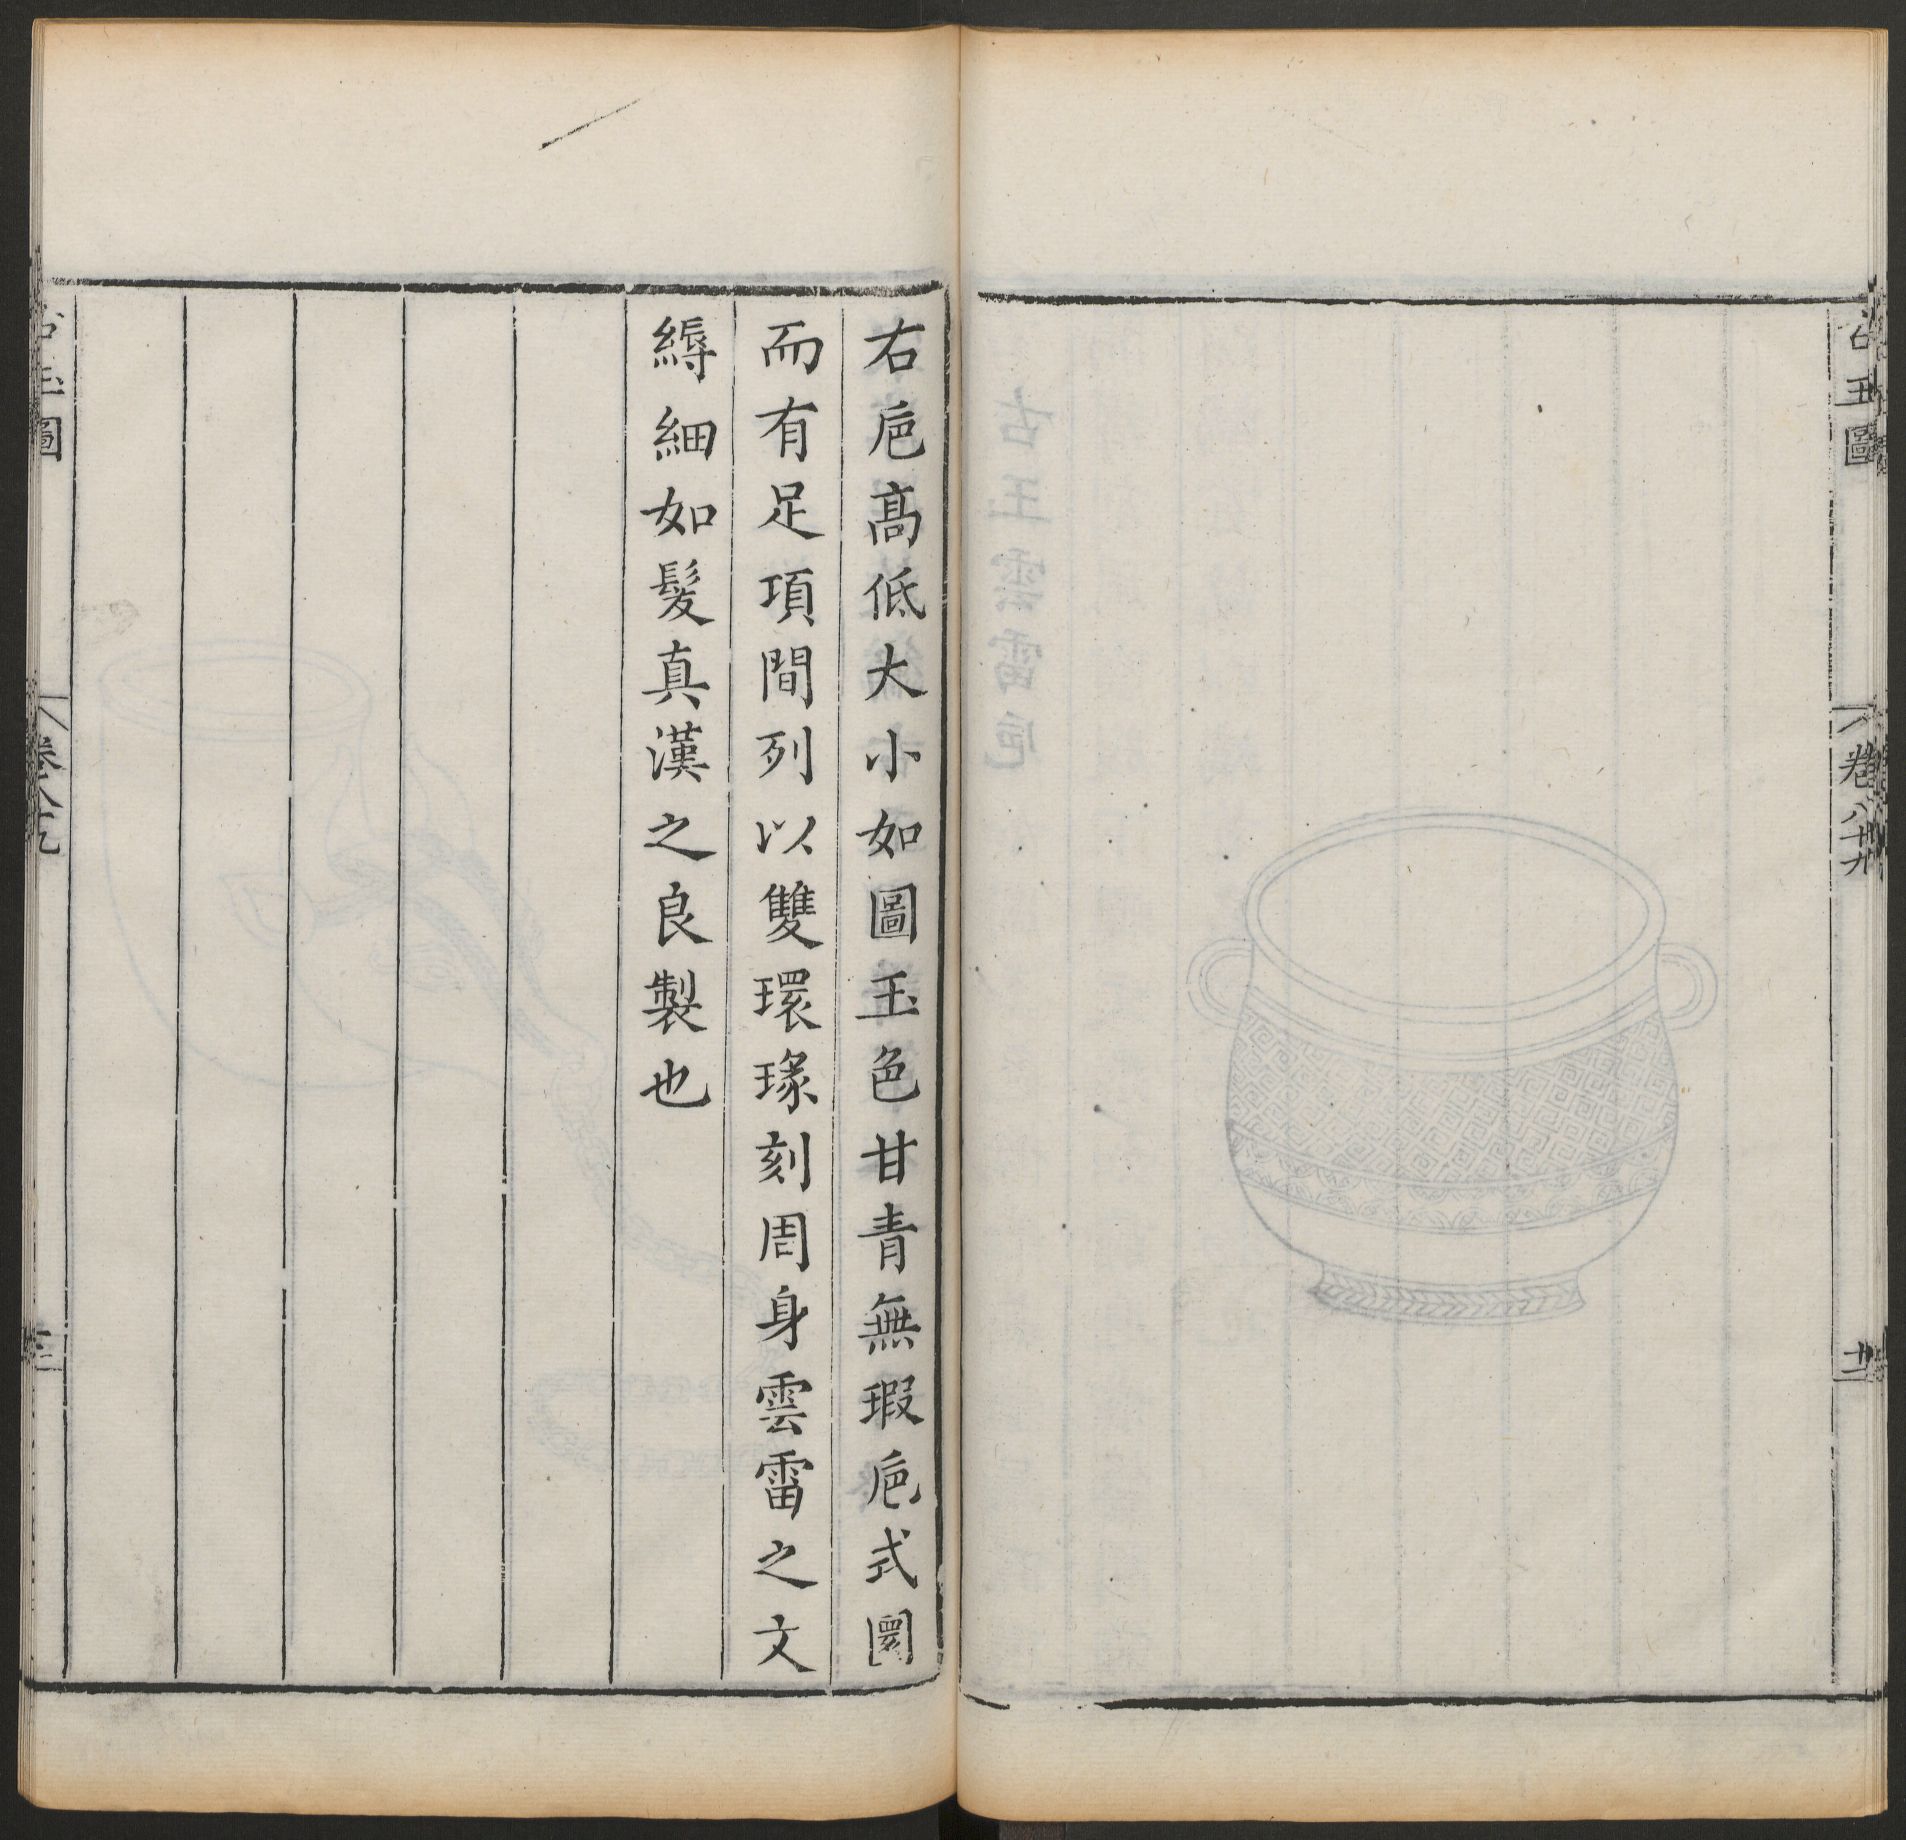 古玉圖
卷八十九
右巵髙低大小如圖玉色甘青無瑕巵式圜
而有足項間列以雙環瑑刻周身雲雷之文
縟細如髮真漢之良製也
古玉圖
卷八十九